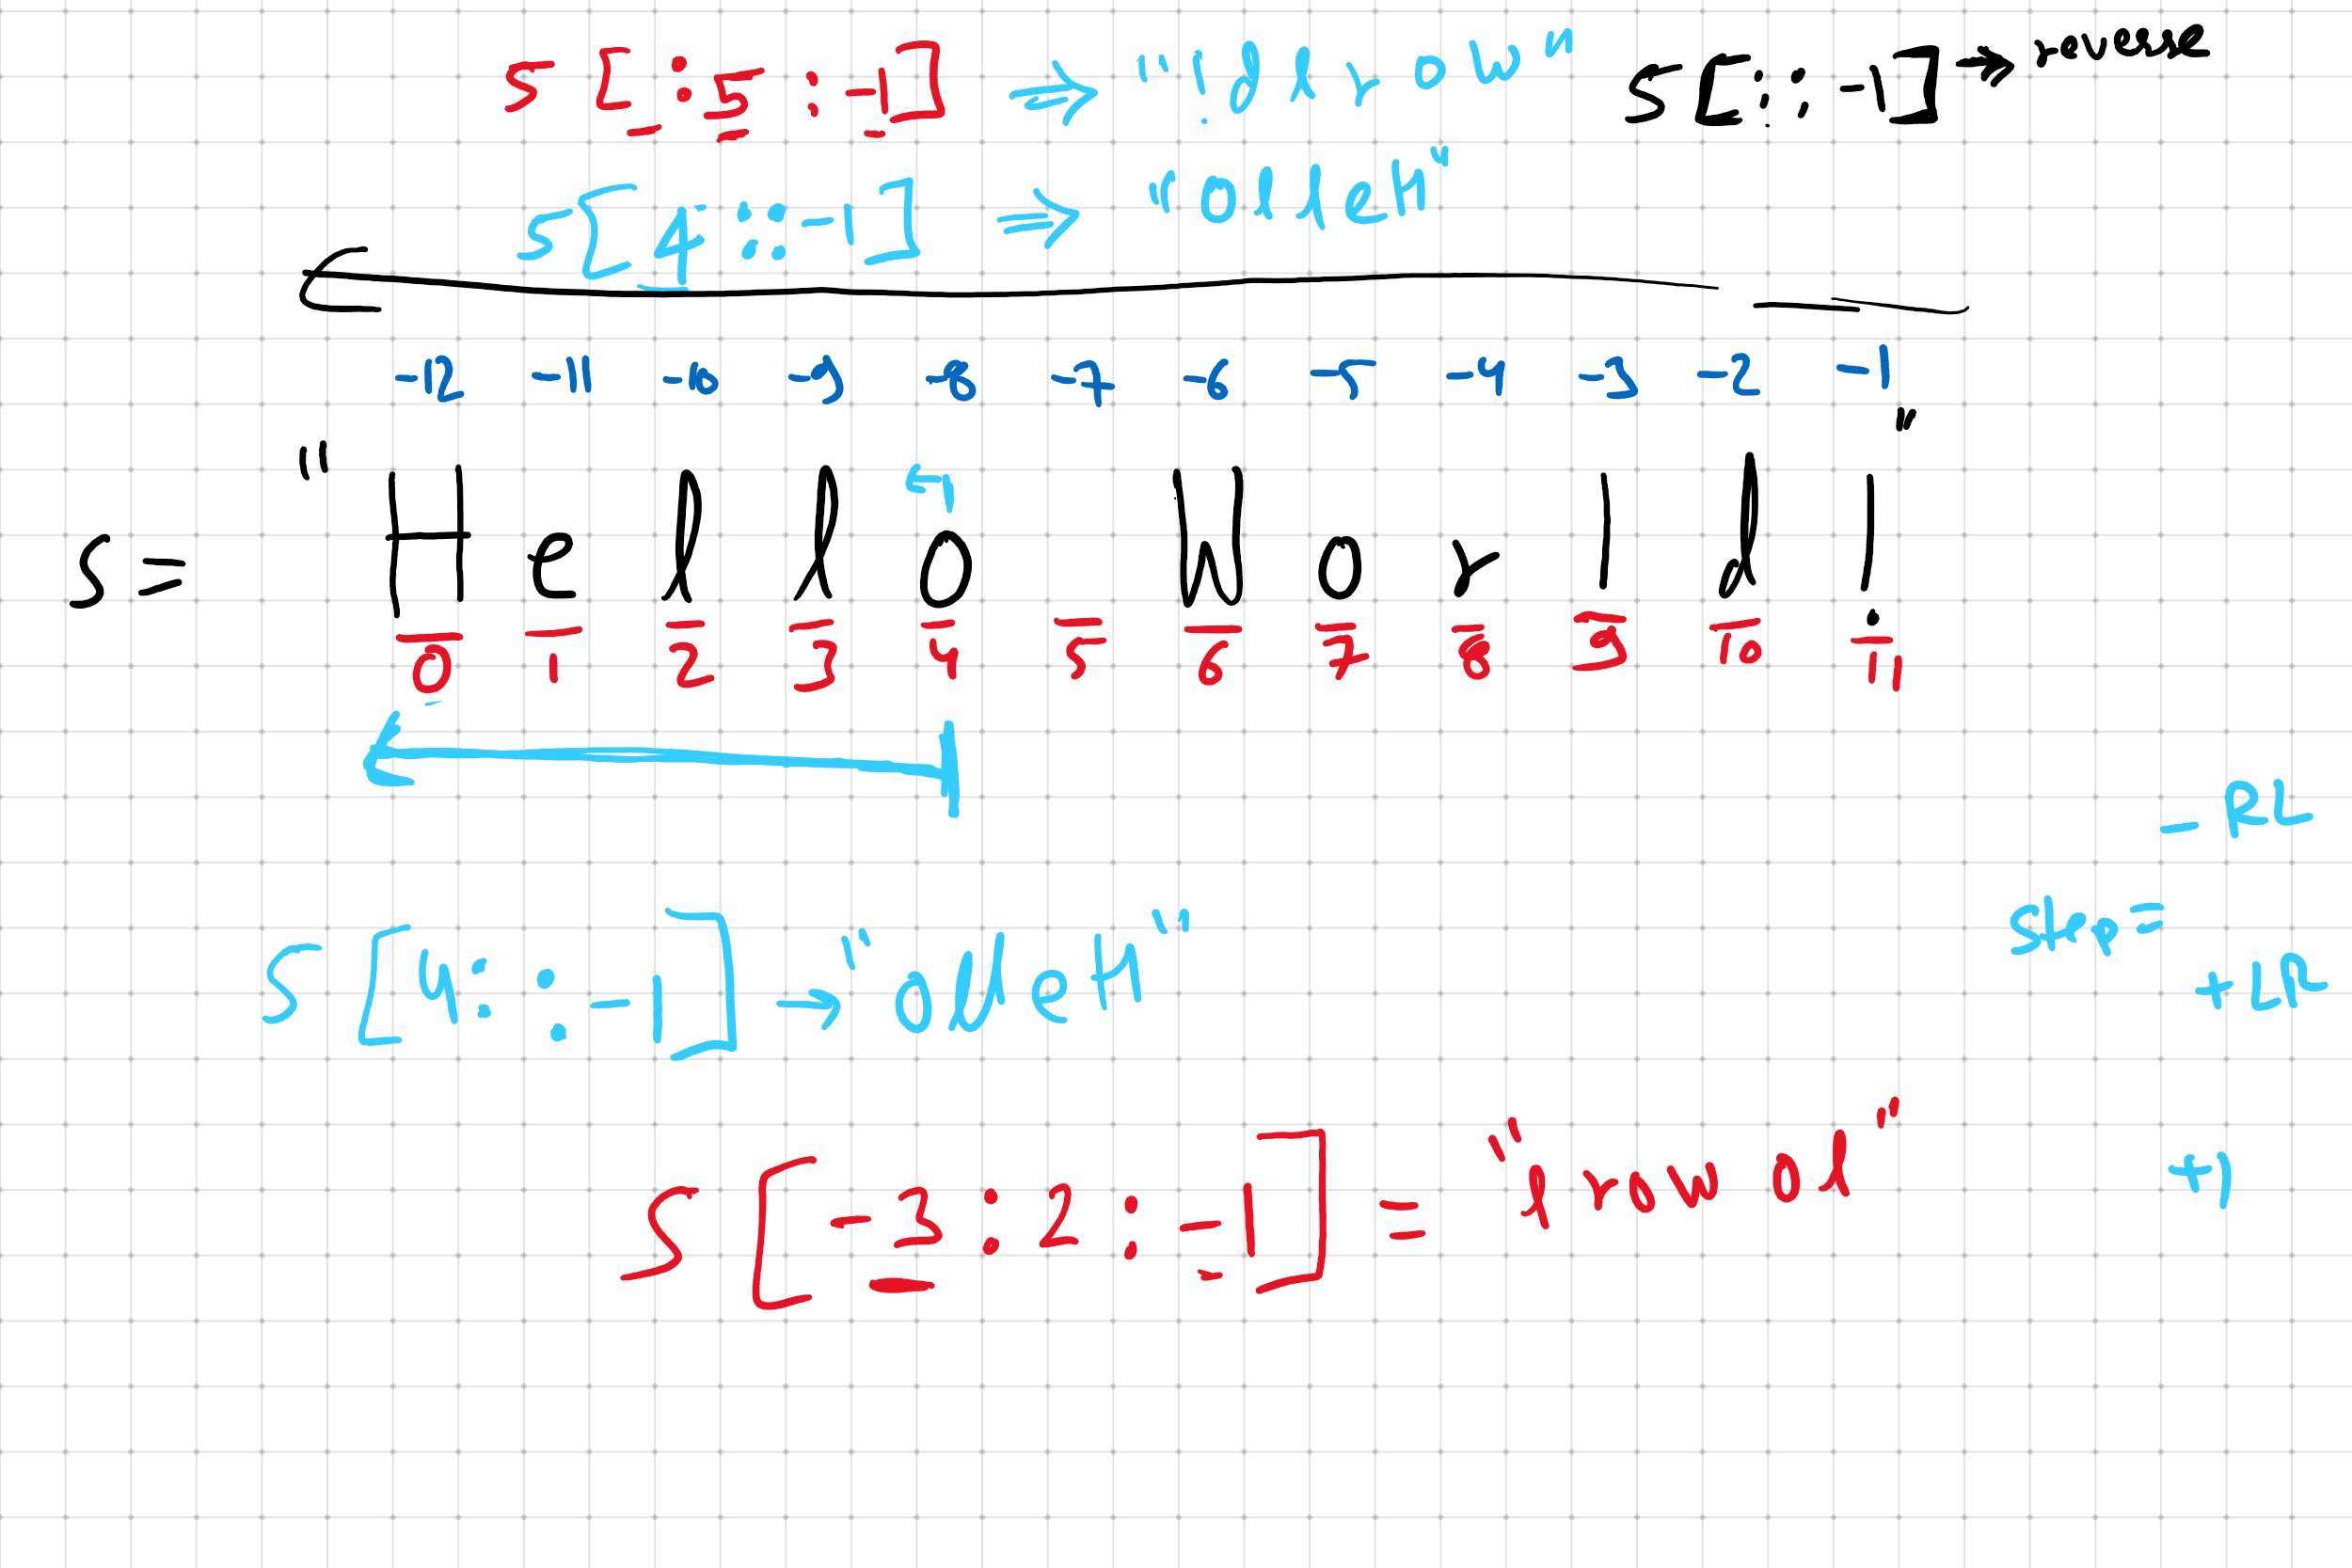 s[:5:-1] ⇒ "!dlroW"
s[::-1] → reverse
s[4::-1] ⇒ "olleH"
-12 -11 -10 -9 -8 -7 -6 -5 -4 -3 -2 -1
s= "Hello World!"
0 1 2 3 4 5 6 7 8 9 10 11
- RL
s[4::-1] → "olleH"
step=
+ LR
s[-3:2:-1] = "lrow ol"
+1